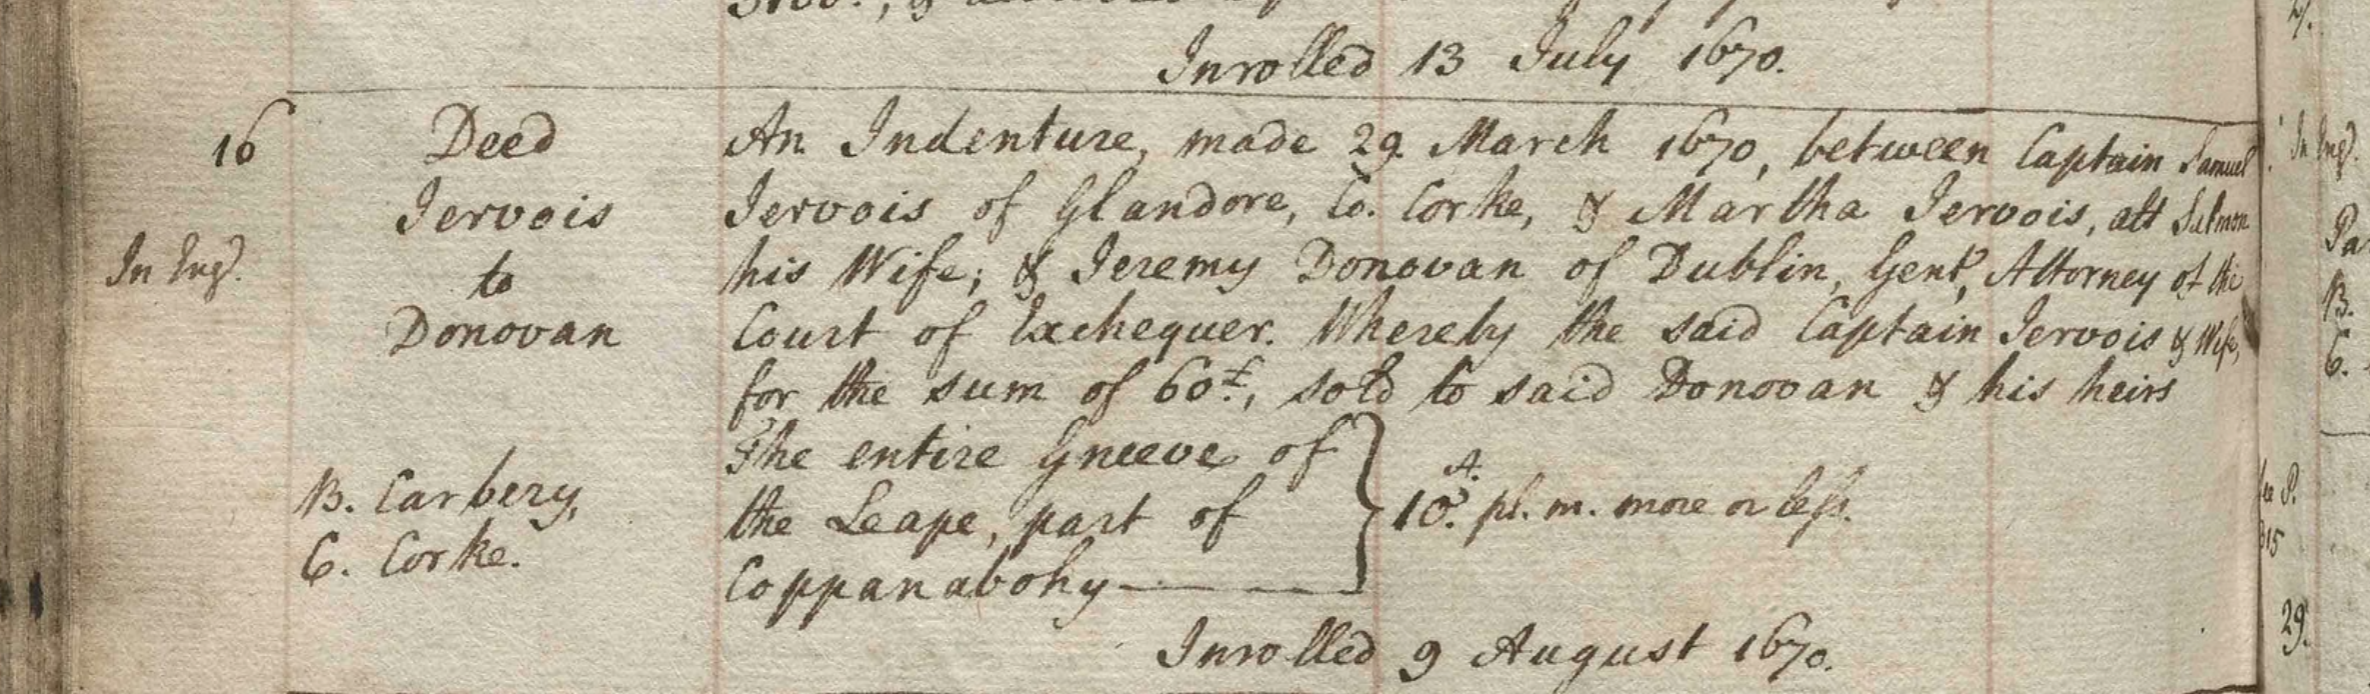 Inrolled 13 July 1670.
16 Deed An Indenture, made 29 March 1670, between Captain Samuel
Jervois Jervois of Glandore, Co. Corke, & Martha Jervois, alt Salmon
In Eng. to his Wife; & Jeremy Donovan of Dublin, Gent, Attorney of the
Donovan Court of Exchequer. Whereby the said Captain Jervois & Wife,
for the sum of 60£, sold to said Donovan & his heirs
The entire Gneeve of
B. Carbery, the Leape, part of 10.A. pl. m. more or less.
C. Corke. Coppanabohy
Inrolled 9 August 1670.
In Eng.
B.
C.
P.
315
29.